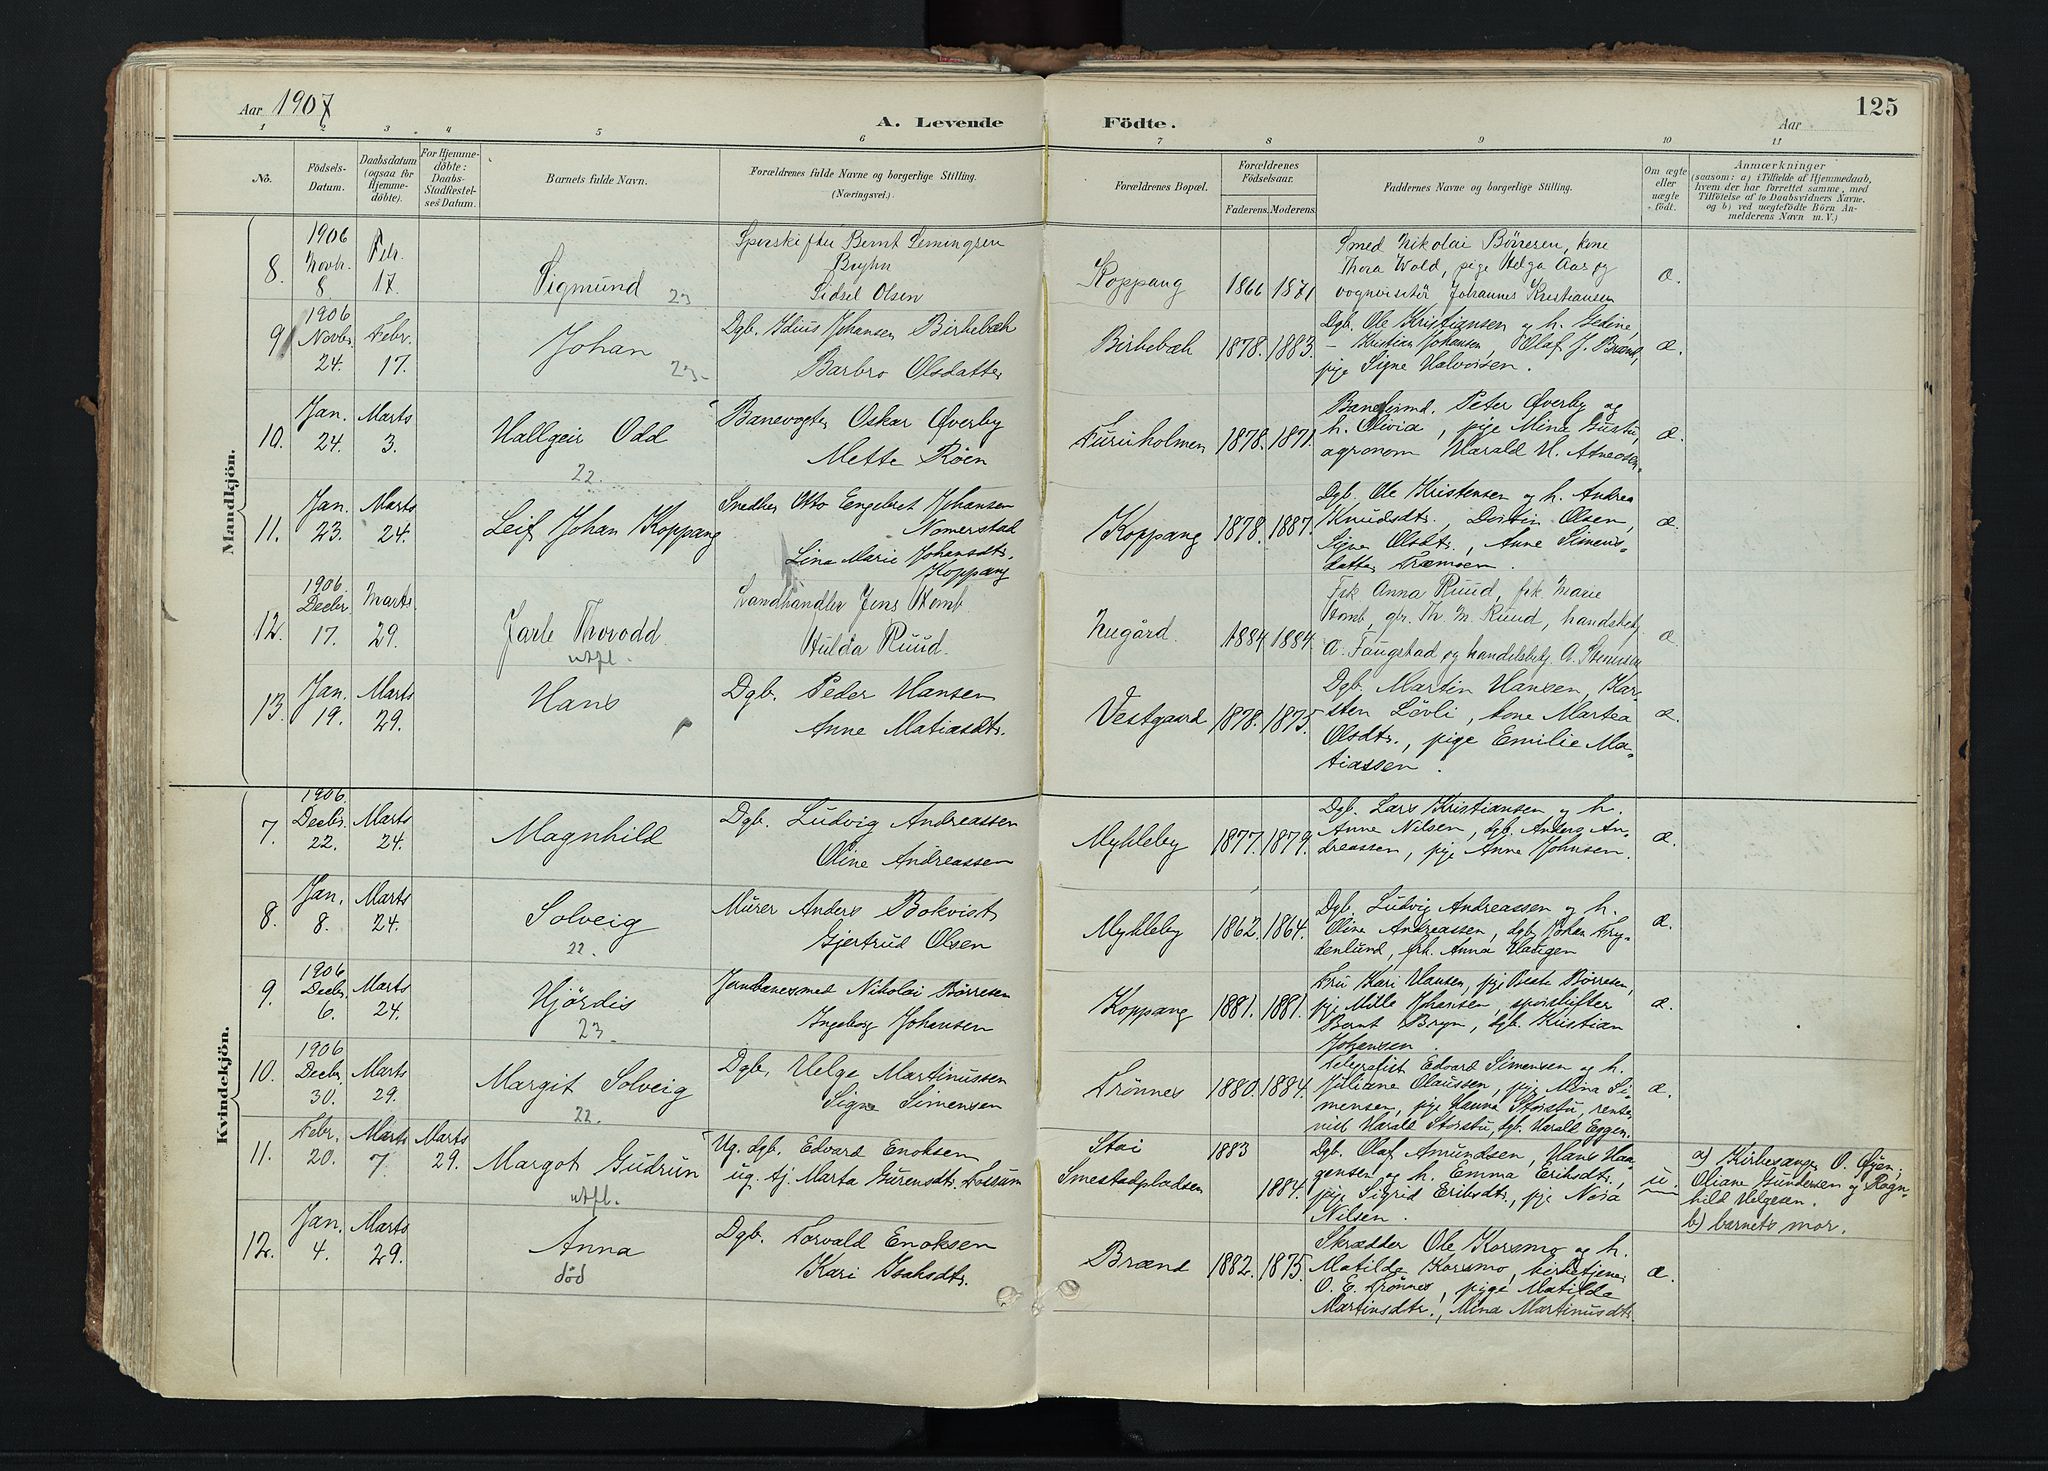 Aar 1907
A. Levende Födte.
Aar
125
1 2 3 4 5 6 7 8 9 10 11
No.
Födsels-Datum.
Daabsdatum (ogsaa for Hjemme-döbte).
For Hjemme-döbte: Daabs-Stadfæstel-ses Datum.
Barnets fulde Navn.
Forældrenes fulde Navne og borgerlige Stilling. (Næringsvei.)
Forældrenes Bopæl.
Forældrenes Födselsaar.
Faderens. Moderens.
Faddernes Navne og borgerlige Stilling.
Om ægte eller uægte födt.
Anmærkninger
(saasom: a) i Tilfælde af Hjemmedaab,
hvem der har forrettet samme, med
Tilföielse af to Daabsvidners Navne,
og b) ved uægtefödte Börn An-
melderens Navn m. V.)
Mandkjön.
8. 1906 Novbr. 8. Febr. 17. Sigmund 23
Sporskifter Bernt Semingsen
Bryhn
Sidsel Olsen
Koppang 1866 1871
Smed Nikolai Börresen, kone
Thora Wold, pige Helga Aas og
vognvisitör Johannes Kristiansen
æ.
9 1906 Novbr. 24. Febr. 17. Johan 23-
Dgb. Johansen Birkebæk
Barbro Olsdatter
Birkebæk 1878. 1883.
Dgb. Ole Kristiansen og h. Gedine,
- Kristian Johansen, Olaf J. Brænd,
pige Signe Halvorsen.
æ.
10. Jan. 24. Marts 3. Hallgeir Odd 22.
Banevogter Oskar Øverby
Mette Röen
Furuholmen 1878. 1871.
Baneformd. Peter Øverby og
h. Olivia, pige Mina
agronom Harald H. Atneosen.
æ.
11. Jan. 23. Marts 24. Leif Johan Koppang
Snedker Otto Engebret Johansen
Nomerstad
Lina Marie Johansdtr.
Koppang
Koppang 1878. 1887.
Dgb. Ole Kristensen og h. Andrea
Knudsdtr., Olsen,
Signe Olsdtr., Anne Simens-
datter Træmoen.
æ.
12. 1906. Decbr. 17. Marts 29. Jarle Thorodd utfl.
Landhandler Jens Homb.
Hulda Ruud.
Nugård. 1884 1884.
Frk Anna Ruud, frk Marie
Homb, gbr. Th. M. Ruud, handelsbetj.
A. Faugstad og handelsbetj. A. Stenersen
æ
13. Jan. 19. Marts 29. Hans
Dgb. Peder Hansen
Anne Matiasdtr.
Vestgaard 1878. 1875.
Dgb. Martin Hansen, Kar-
sten Lövli, kone Martea
Olsdtr., pige Emilie Ma-
tiassen.
æ.
Kvindekjön.
7. 1906. Decbr. 22. Marts 24. Magnhild
Dgb. Ludvig Andreassen
Oline Andreassen
Mykleby 1877. 1879.
Dgb. Lars Kristiansen og h.
Anne Nilsen, dgb. Anders An-
dreassen, pige Anne Johnsen.
æ.
8. Jan. 8. Marts 24. Solveig 22.
Murer Anders Bokvist
Gjertrud Olsen
Mykleby 1862. 1864.
Dgb. Ludvig Andreassen og h.
Oline Andreassen, dgb. Johan Fry-
denlund, frk. Anna Haugen
æ.
9. 1906 Decbr. 6. Marts 24. Hjördis 23.
Jernbanesmed Nikolai Börresen
Ingeborg Johansen
Koppang 1881. 1881.
Fru Kari Hansen, pige Beate Börresen,
pige Mille Johansen, sporskifter
Bernt Bryn, dgb. Kristian
Johansen.
æ
10. 1906 Decbr. 30. Marts 29. Margit Solveig 22.
Dgb. Helge Martinussen
Signe Simensen
Trönnes 1880. 1884.
Telegrafist Edvard Simensen og h.
Juliane Olaussen, pige Mina Si-
mensen, pige Hanna Storstu,
Harald Storstu, dgb. Harald Eggen.
æ.
11. Febr. 20. Marts 7. Marts 29. Margot Gudrun utfl.
Ug. dgb. Edvard Enoksen
ug. tj. Marta Gurensdtr. Fossum
Stai 1883
Smestadpladsen 1884.
Dgb. Olaf Amundsen, Hans Haa-
gensen og h. Emma Eriksdtr.,
pige Sigrid Eriksdtr., pige Nora
Nilsen.
u.
a) Kirkesanger O. Øyen;
Oliane Gundersen og Ragn-
hild Helgesen.
b) barnets mor.
12. Jan. 4. Marts 29. Anna död
Dgb. Torvald Enoksen
Kari Isaksdtr.
Brænd 1882. 1875.
Skrædder Ole Korsmo og h.
Matilde Korsmo, kirketjener
O. E. Trönnes, pige Matilda
Martinsdtr., Mina Martinusdtr.
æ.